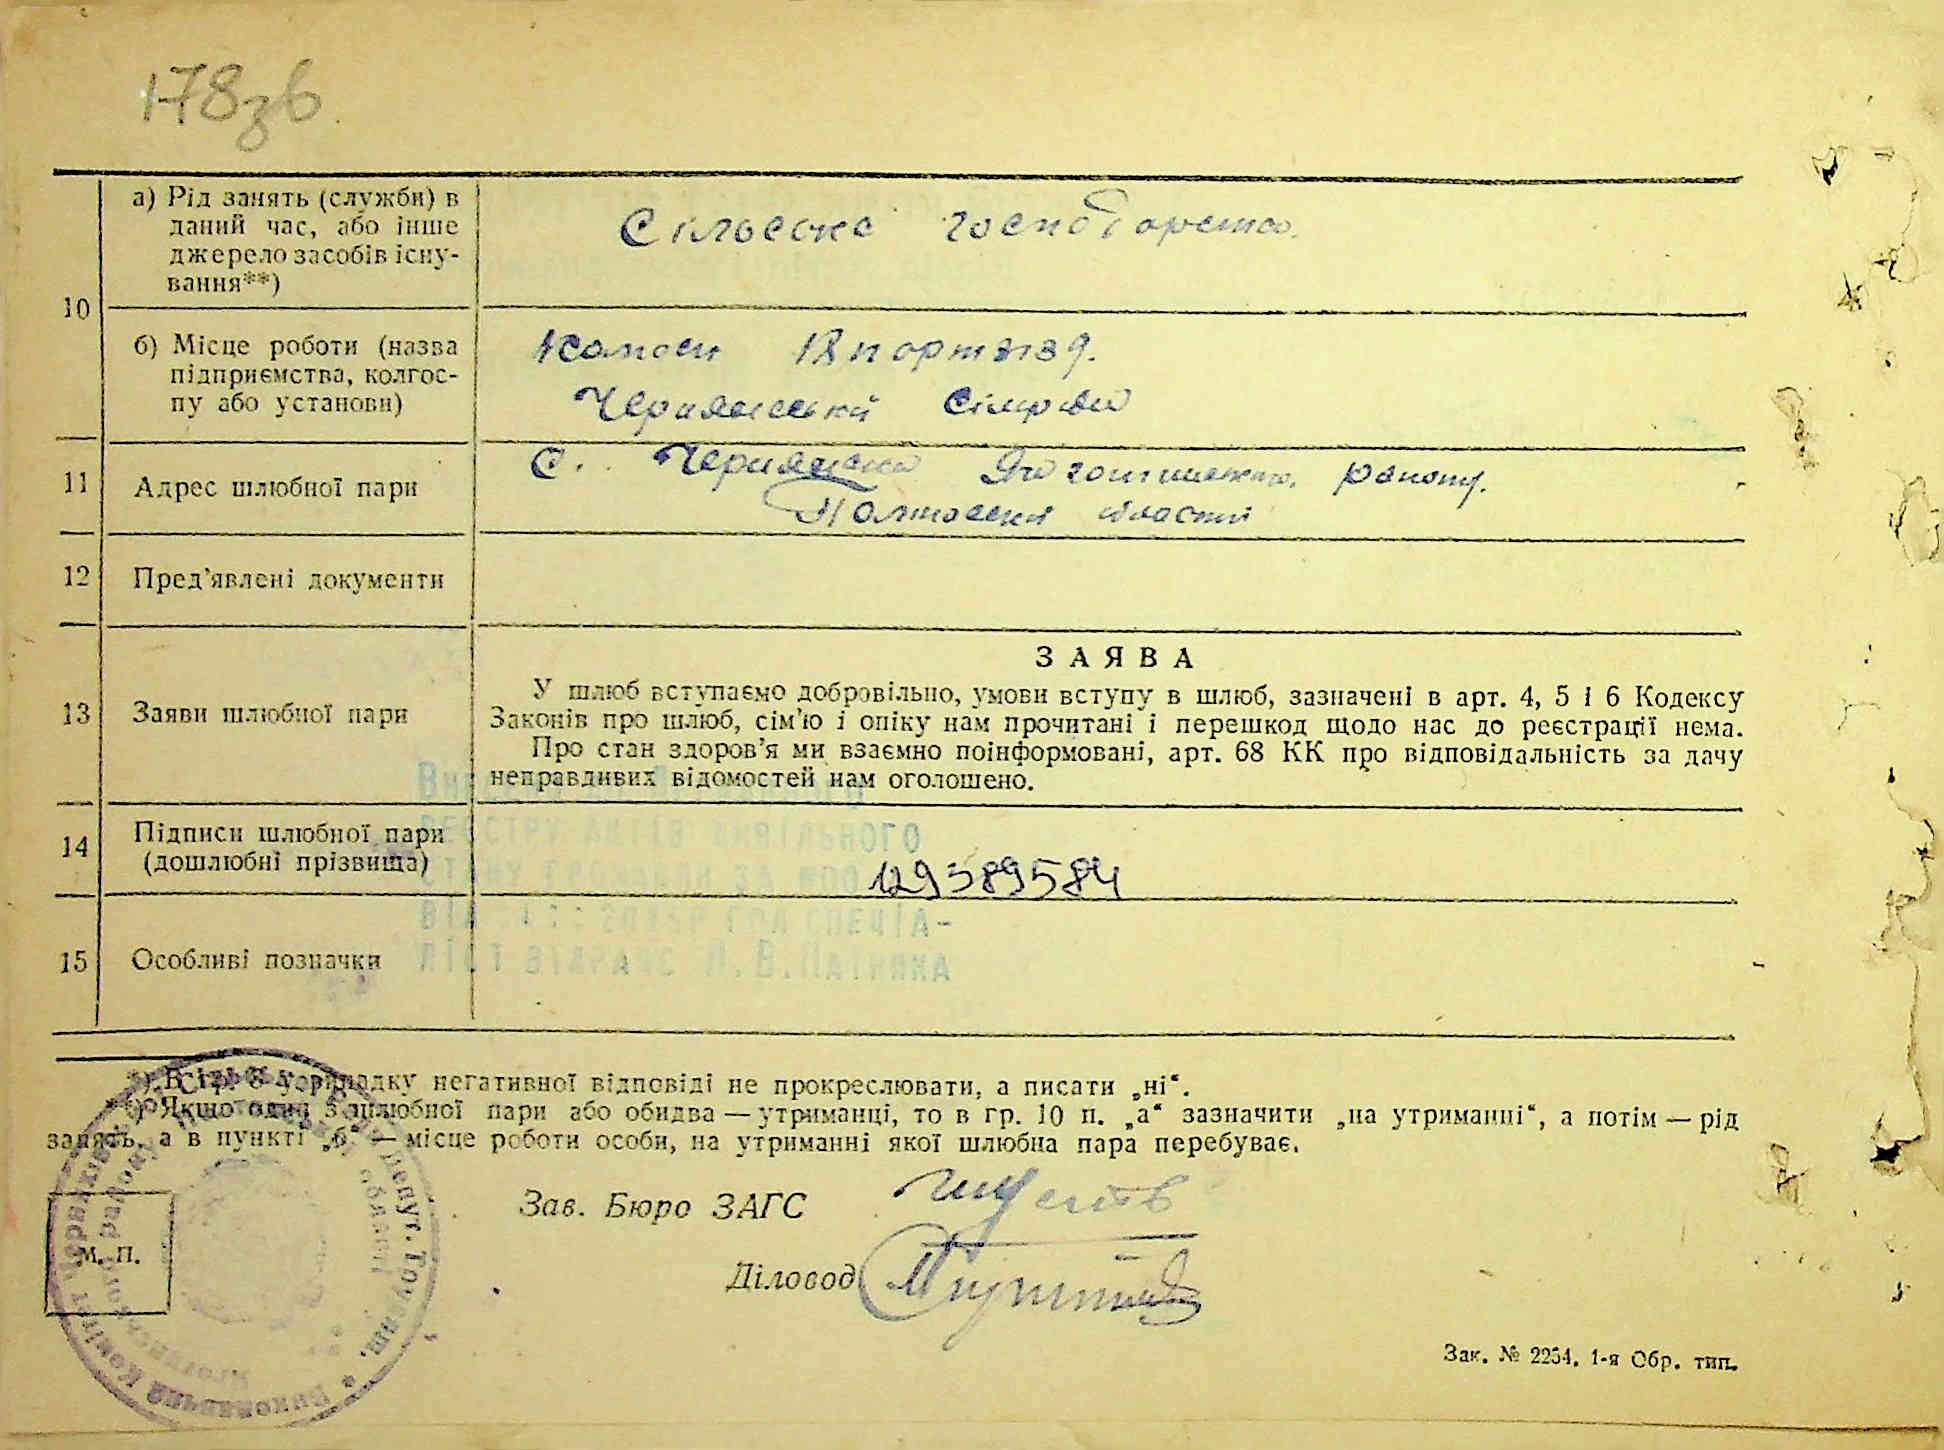 178зв
а) Рід занять (служби) в
даний час, або інше
джерело засобів існу-
вання**)
Сільське господарство.
10
б) Місце роботи (назва
підприємства, колгос-
пу або установи)
Колгосп 18 партз'їзд.
Черняхівської сільради
11
Адрес шлюбної пари
с. району.
Полтавської області
12
Пред’явлені документи
13
Заяви шлюбної пари
ЗАЯВА
У шлюб вступаємо добровільно, умови вступу в шлюб, зазначені в арт. 4, 5 і 6 Кодексу
Законів про шлюб, сім’ю і опіку нам прочитані і перешкод щодо нас до реєстрації нема.
Про стан здоров’я ми взаємно поінформовані, арт. 68 КК про відповідальність за дачу
неправдивих відомостей нам оголошено.
14
Підписи шлюбної пари
(дошлюбні прізвища)
РЕЄСТРУ АКТІВ ЦИВІЛЬНОГО
СТАНУ ГРОМАДЯН ЗА
129389584
СПЕЦІА-
15
Особливі позначки
ЛІСТ
*) В гр. 8 у випадку негативної відповіді не прокреслювати, а писати „ні“.
**) Якщо один з шлюбної пари або обидва — утриманці, то в гр. 10 п. „а“ зазначити „на утриманні“, а потім — рід
занять, а в пункті „б“ — місце роботи особи, на утриманні якої шлюбна пара перебуває.
Зав. Бюро ЗАГС
М. П.
Діловод
Депут. Трудящ. * Виконавчий Комітет
області
Зак. № 2254. 1-я Обр. тип.